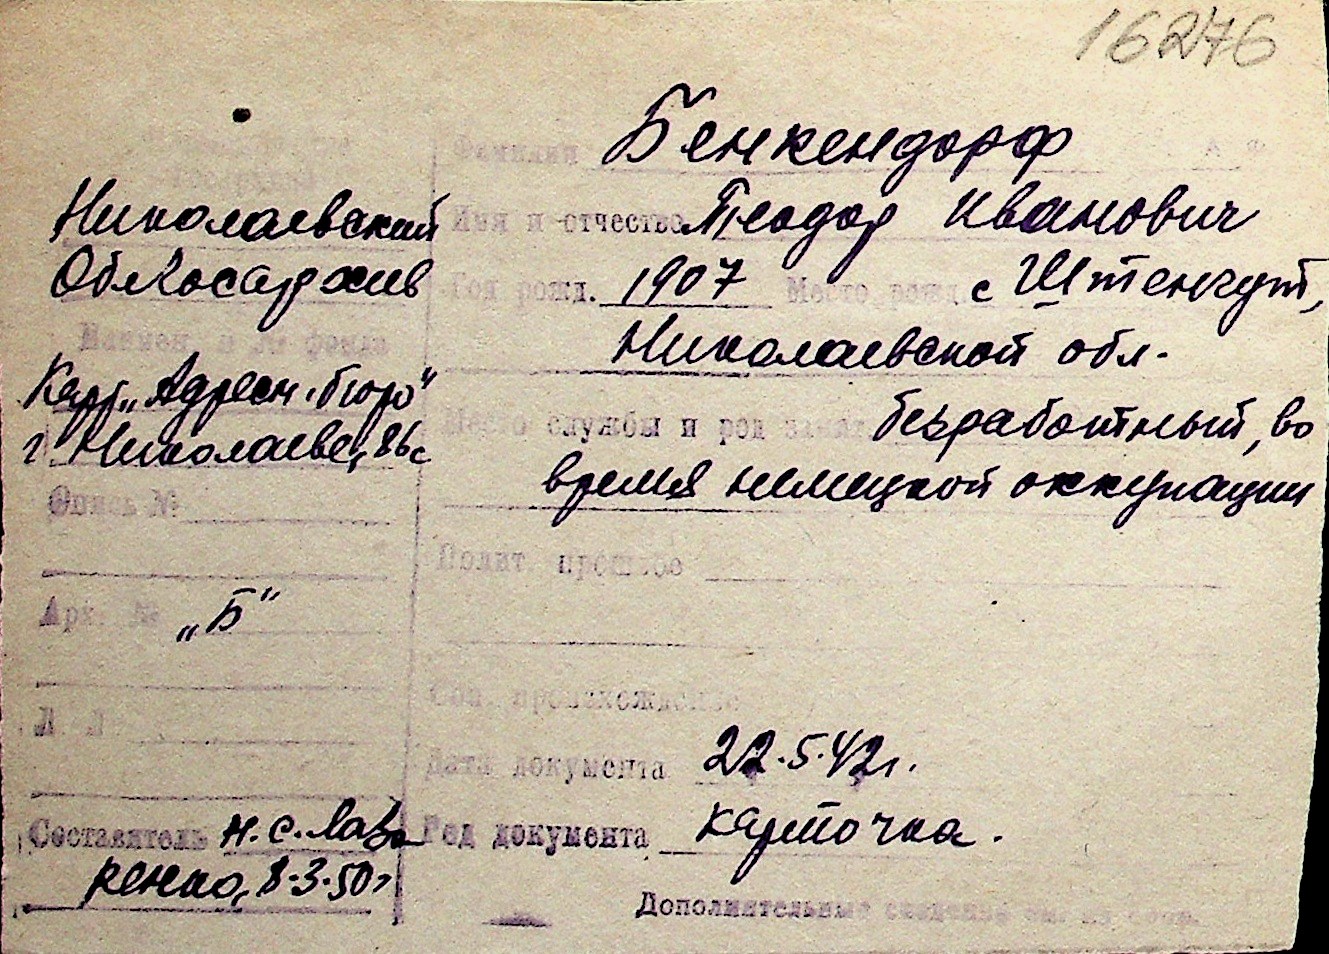 16276
Фамилия Бенкендорф
Николаевский
Облгосархив
Имя и отчество Теодор Иванович
Год рожд. 1907 Место рожд. с Штенгут,
Николаевской обл.
Наимен. и № фонда
Карт. „Адресн. бюро"
г. Николаева,
Место службы и род занят безработный, во
время немецкой оккупации
Опись №
Полит. прошлое
Арх. № „Б"
Соц. происхождение
Дата документа 22.5.42г.
Составитель Н.С. Лаза
ренко, 8.3.50г
Род документа карточка.
Дополнительные сведения